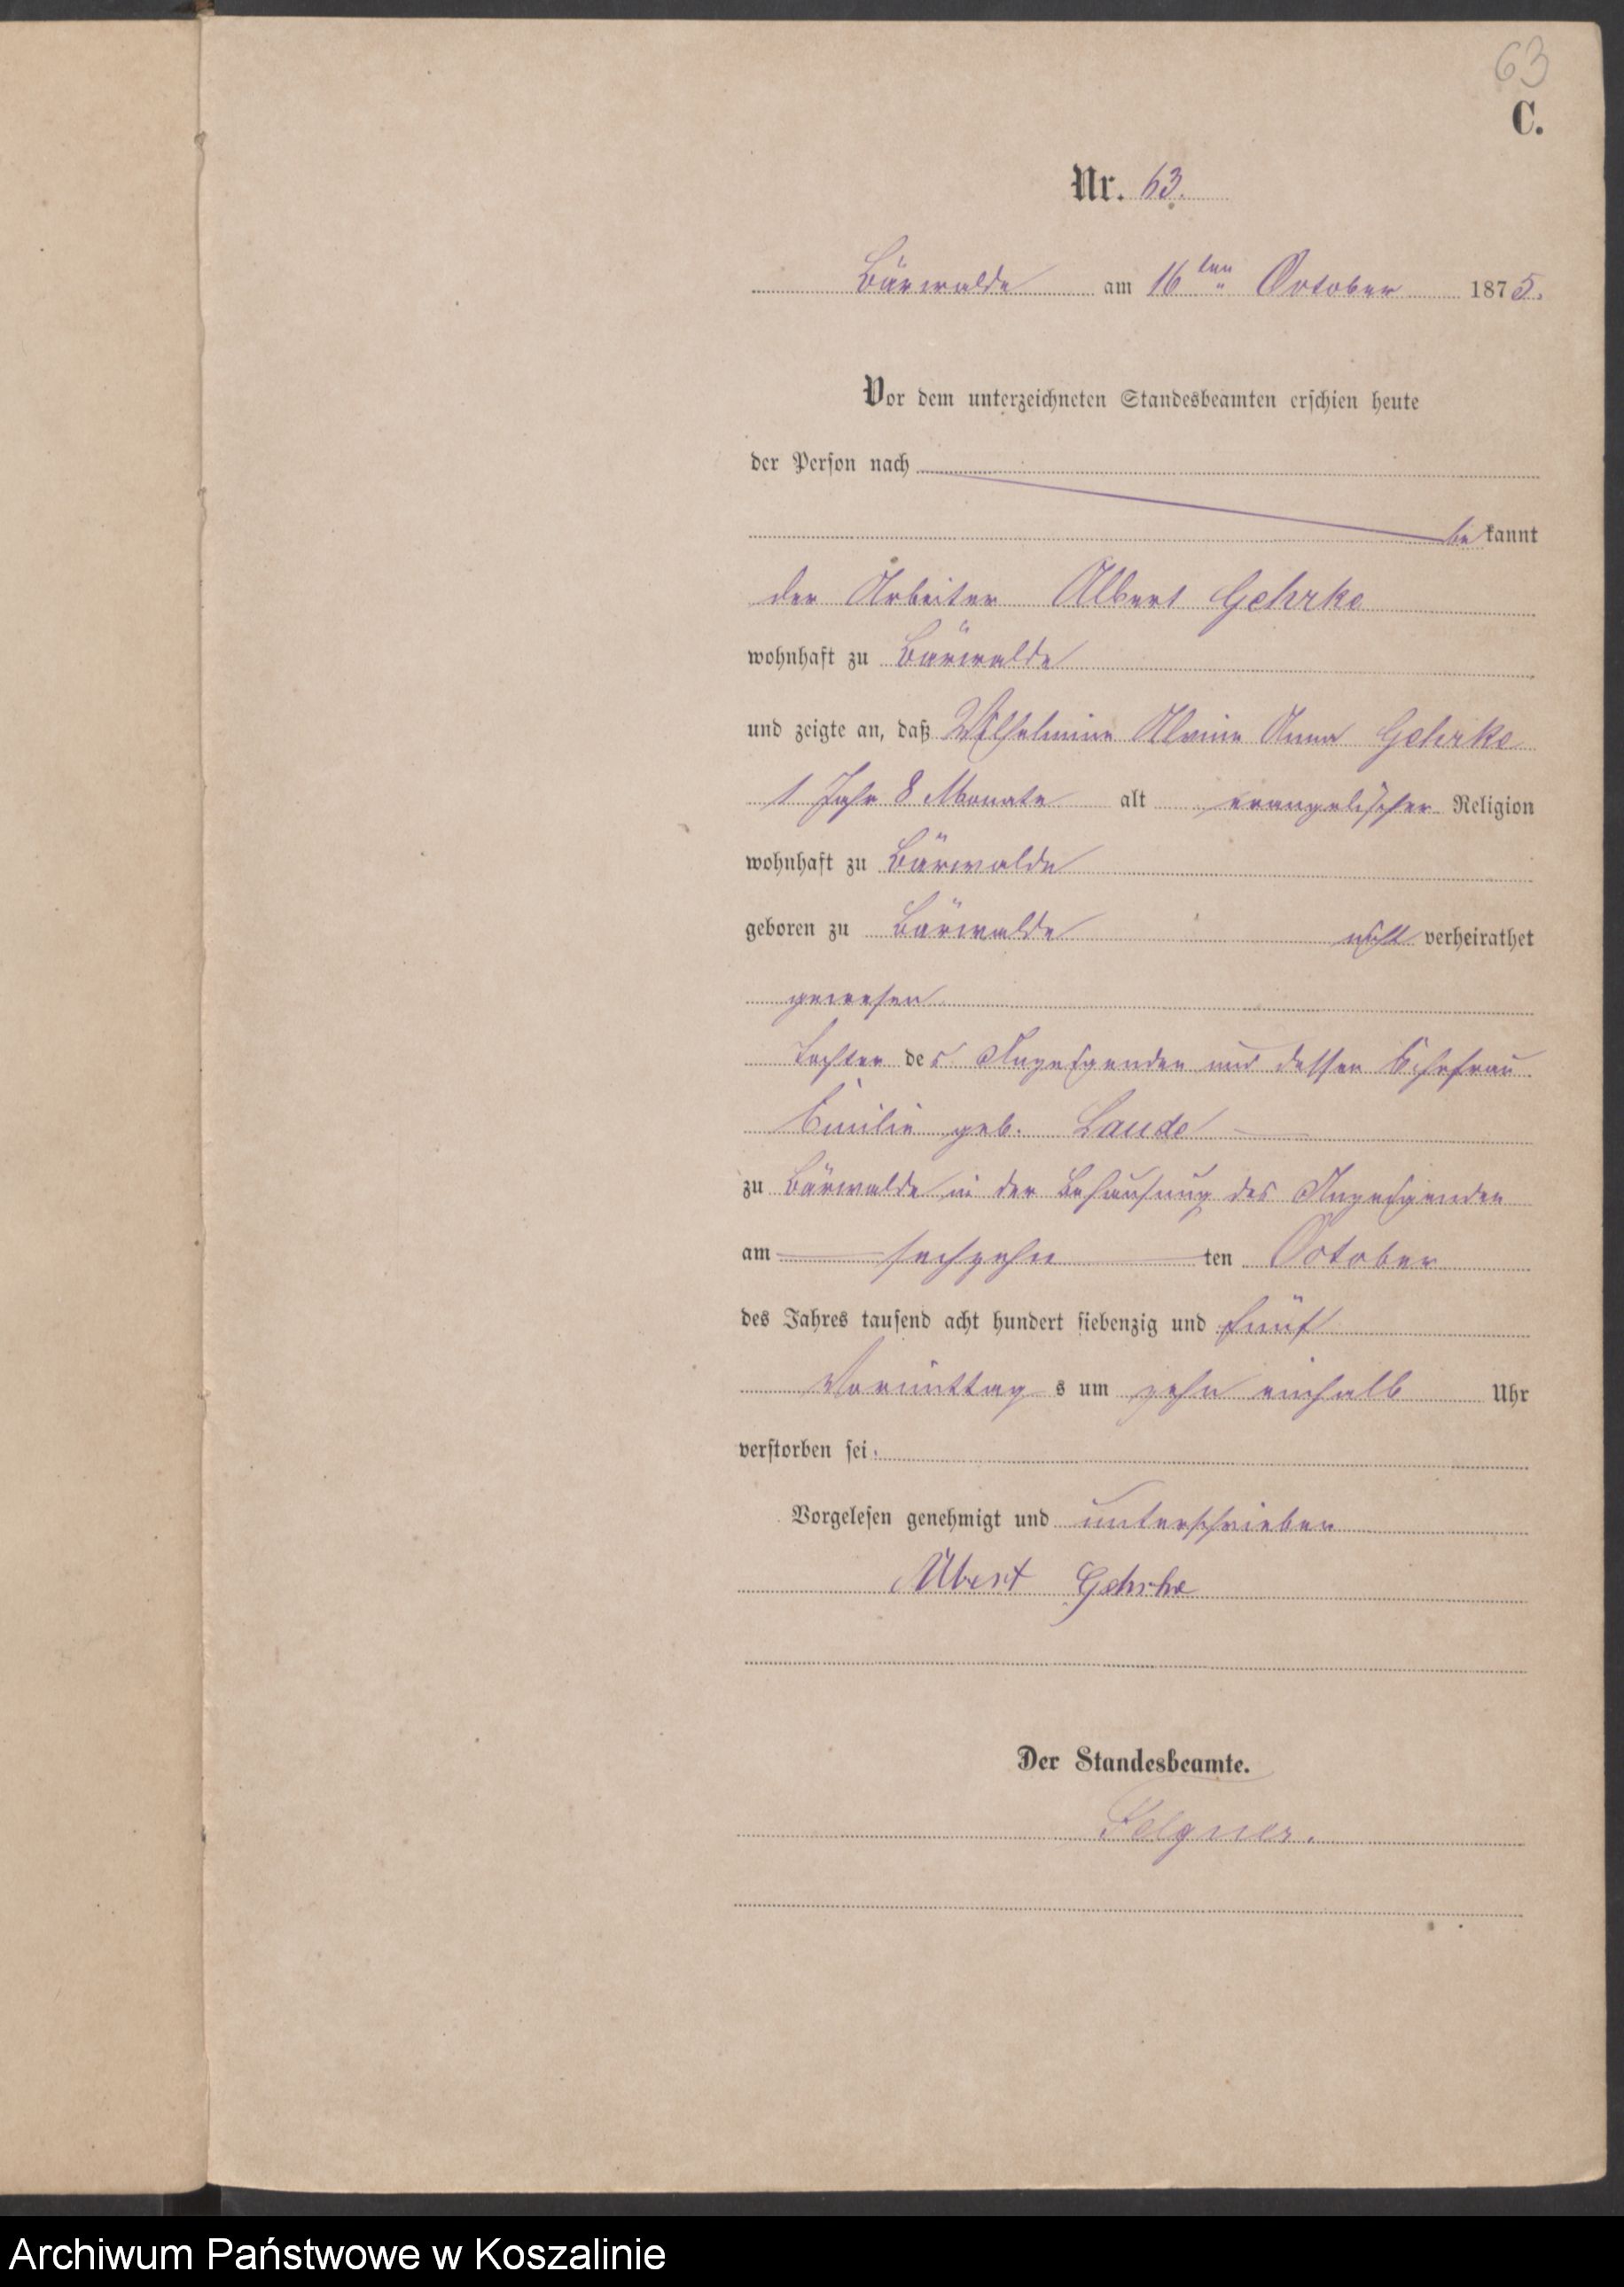 63
C.
Nr. 63.
Bärwalde am 16ten October 1875.
Vor dem unterzeichneten Standesbeamten erschien heute
der Person nach
bekannt
der Arbeiter Albert Gehrke
wohnhaft zu Bärwalde
und zeigte an, daß Wilhelmine Alvine Anna Gehrke
1 Jahr 8 Monate alt evangelischer Religion
wohnhaft zu Bärwalde
geboren zu Bärwalde nicht verheirathet
gewesen
Tochter des Anzeigenden und dessen Ehefrau
Emilie geb.
zu Bärwalde in der Behausung des Anzeigenden
am sechzehnten October
des Jahres tausend acht hundert siebenzig und fünf
Vormittags um zehn einhalb Uhr
verstorben sei.
Vorgelesen genehmigt und unterschrieben
Albert Gehrke
Der Standesbeamte.
Felgner.
Archiwum Państwowe w Koszalinie